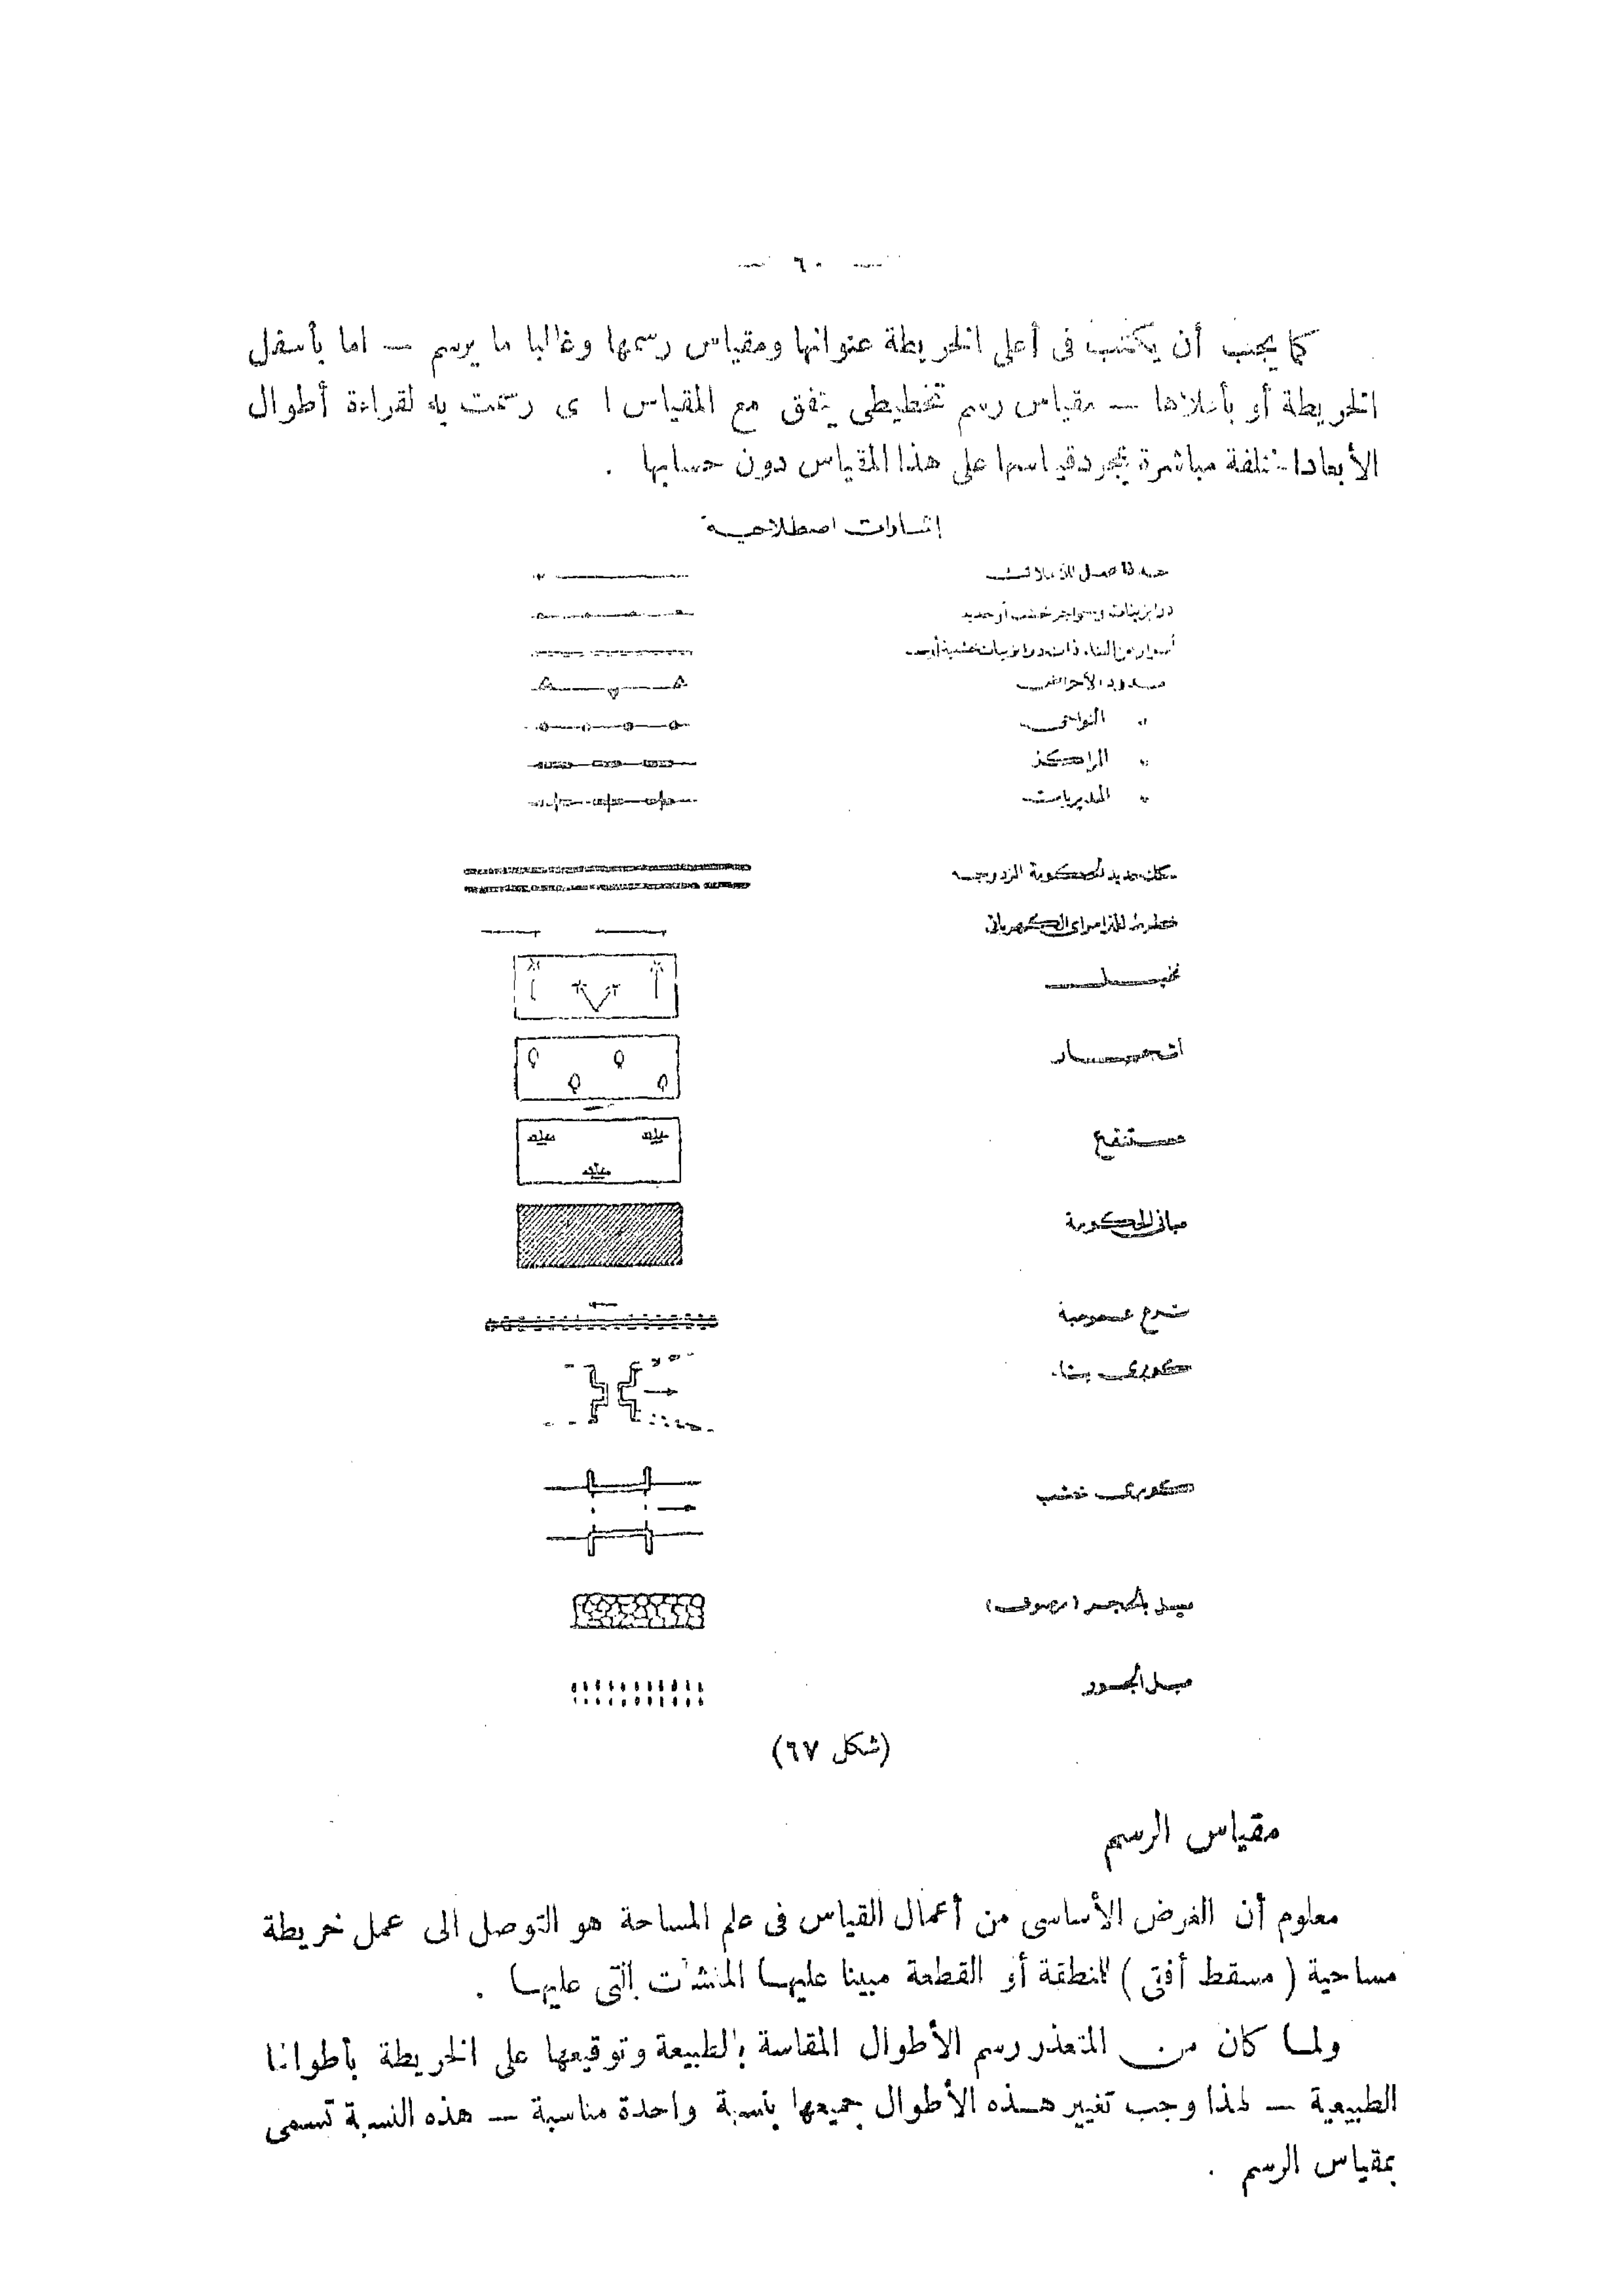 — ٦٠ —
كما يجب أن يكتب فى أعلى الخريطة عنوانها ومقياس رسمها وغالبا ما يرسم — اما بأسفل
الخريطة أو بأعلاها — مقياس رسم تخطيطى يتفق مع المقياس ا ى رسمت به لقراءة أطوال
الأبعاد مباشرة بمجرد قياسها على هذا المقياس دون حسابها .
إشارات اصطلاحية
درابزينات وحواجز خشب أو حديد
أسوار من البناء ذات درابزينات خشبية
حدود الأحواض
" النواحى
" المراكز
" المديريات
سكك حديد الحكومة المزدوجه
خطوط للترامواى الكهربائى
نخيل
اشجار
مستنقع
مبانى الحكومة
ترع عمومية
كوبرى بناء
كوبرى خشب
ميل بالحجر (مرصوف)
ميل الجسور
(شكل ٦٧)
مقياس الرسم
معلوم أن الغرض الأساسى من أعمال القياس فى علم المساحة هو التوصل الى عمل خريطة
مساحية ( مسقط أفقى ) للمنطقة أو القطعة مبينا عليها المنشآت التى عليها .
ولما كان من المتعذر رسم الأطوال المقاسة بالطبيعة وتوقيعها على الخريطة بأطوالها
الطبيعية — لهذا وجب تغيير هذه الأطوال جميعها بنسبة واحدة مناسبة — هذه النسبة تسمى
بمقياس الرسم .